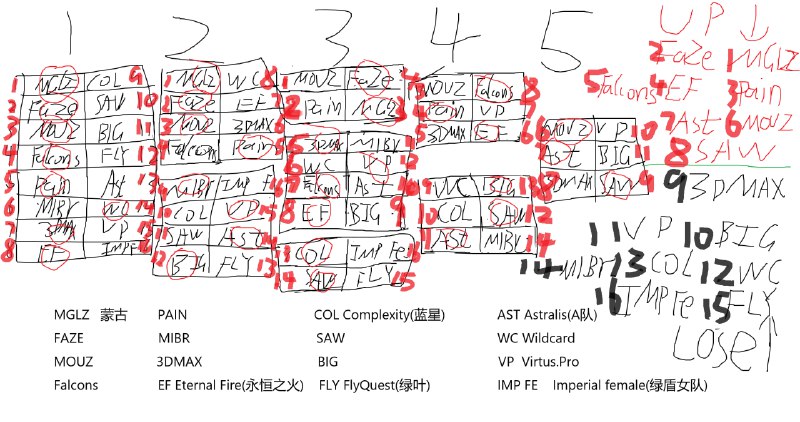 1 2 3 4 5 UP↓
1 MGLZ COL 9
2 FaZe SAW 10
3 MOUZ BIG 11
4 Falcons FLY 12
5 Pain Ast 13
6 MIBR WC 14
7 3DMAX VP 15
8 EF IMP Fe
1 MGLZ WC 8
2 FaZe EF 7
3 MOUZ 3DMAX 6
4 Falcons Pain
MIBR IMP F
10 COL VP
SAW AST
12 BIG FLY 13
1 MOUZ FaZe 4
2 Pain MGLZ
3DMAX MIBR
6 WC VP 12
7 Falcons AST
8 EF BIG 9
COL IMP Fe
14 SAW FLY 15
MOUZ Falcons 8
Pain VP
5 3DMAX EF 6
WC BIG 13
10 COL SAW 12
11 AST MIBR 14
MOUZ VP 10
AST BIG 11
3DMAX SAW 9
2 FaZe 1 MGLZ
5 Falcons 4 EF 3 Pain
7 Ast 6 MOUZ
8 SAW
9 3DMAX
11 VP 10 BIG
14 MIBR 13 COL 12 WC
16 IMP Fe 15 FLY
LOSE↑
MGLZ 蒙古 PAIN COL Complexity(蓝星) AST Astralis(A队)
FAZE MIBR SAW WC Wildcard
MOUZ 3DMAX BIG VP Virtus.Pro
Falcons EF Eternal Fire(永恒之火) FLY FlyQuest(绿叶) IMP FE Imperial female(绿盾女队)